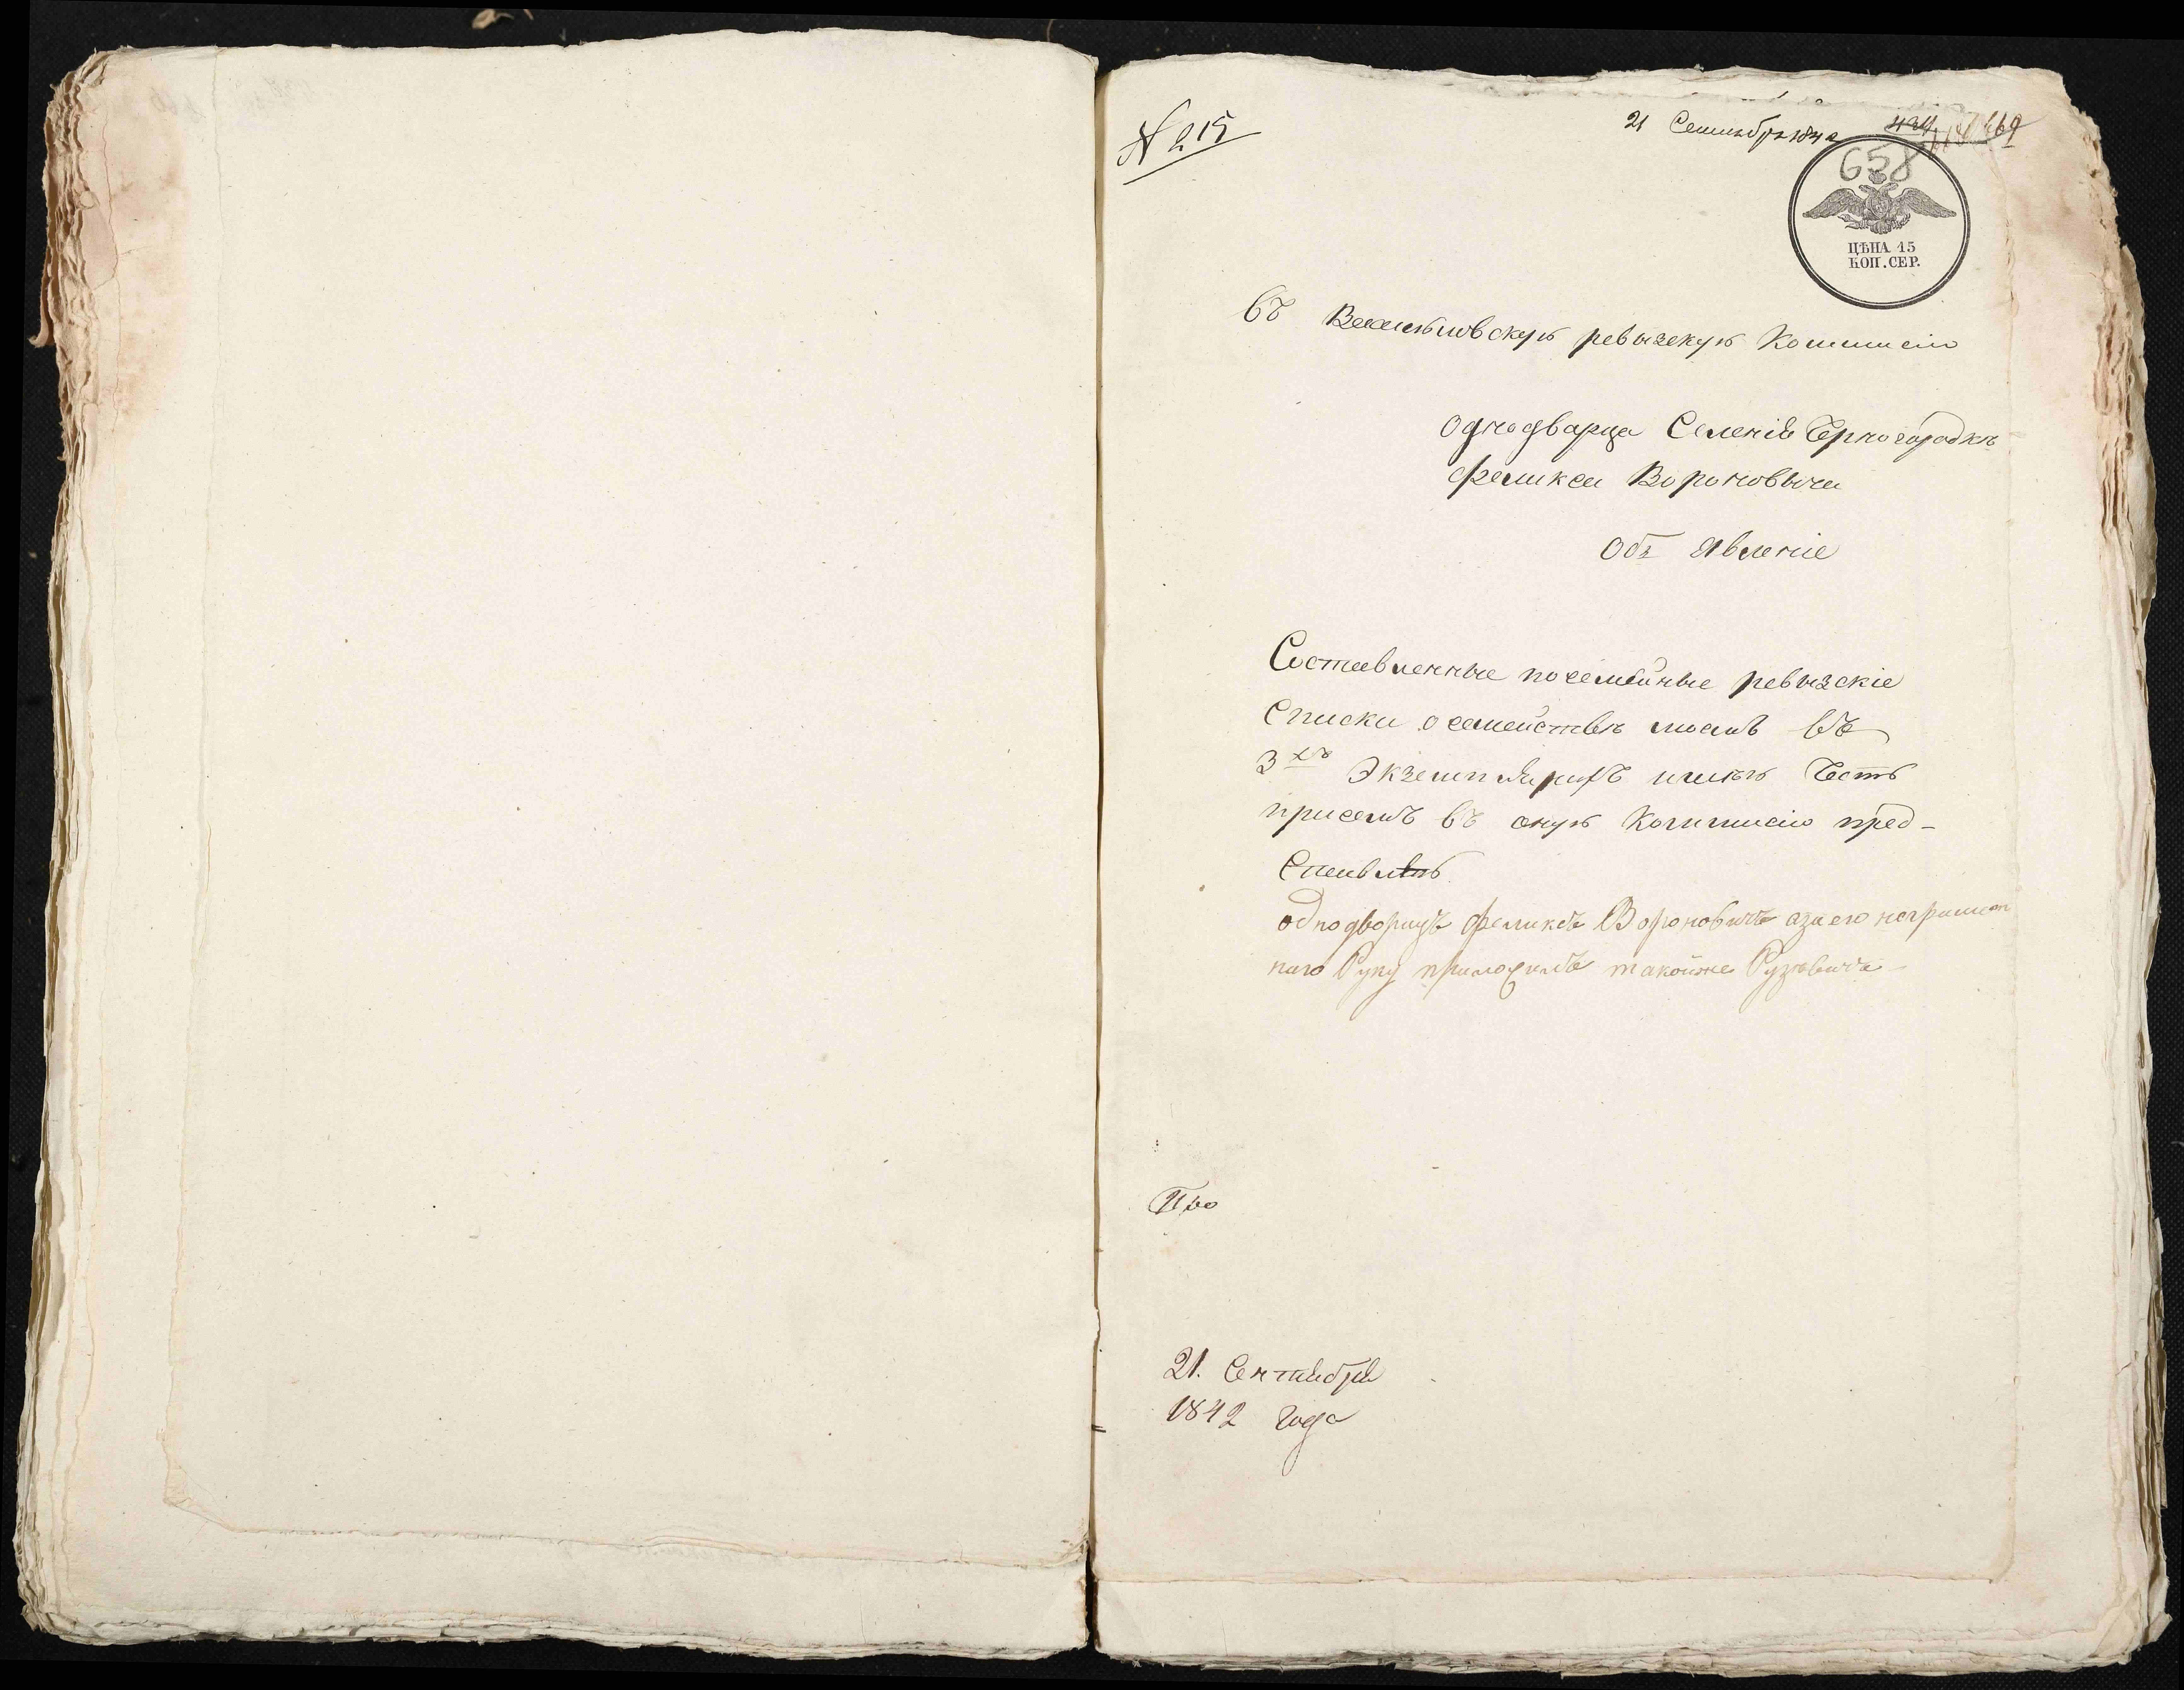 № 215
21 Сентября 1842
434 469
658
ЦѢНА 15
КОП. СЕР.
Въ Васильковскую ревызскую Коммисію
однодварца Селенія Черногородкѣ
Феликса Вороновыча
Объ Явленіе
Составленные посемейные ревызскіе
Списки о семействѣ моемъ въ
3хъ Экземплярахъ имѣю Честь
присемъ въ оную Коммисію пред-
Ставлять
однодворицъ Феликсъ Вороновичъ азаего неграмот
наго Руку приложилъ такойже
21. Сентября
1842 Года